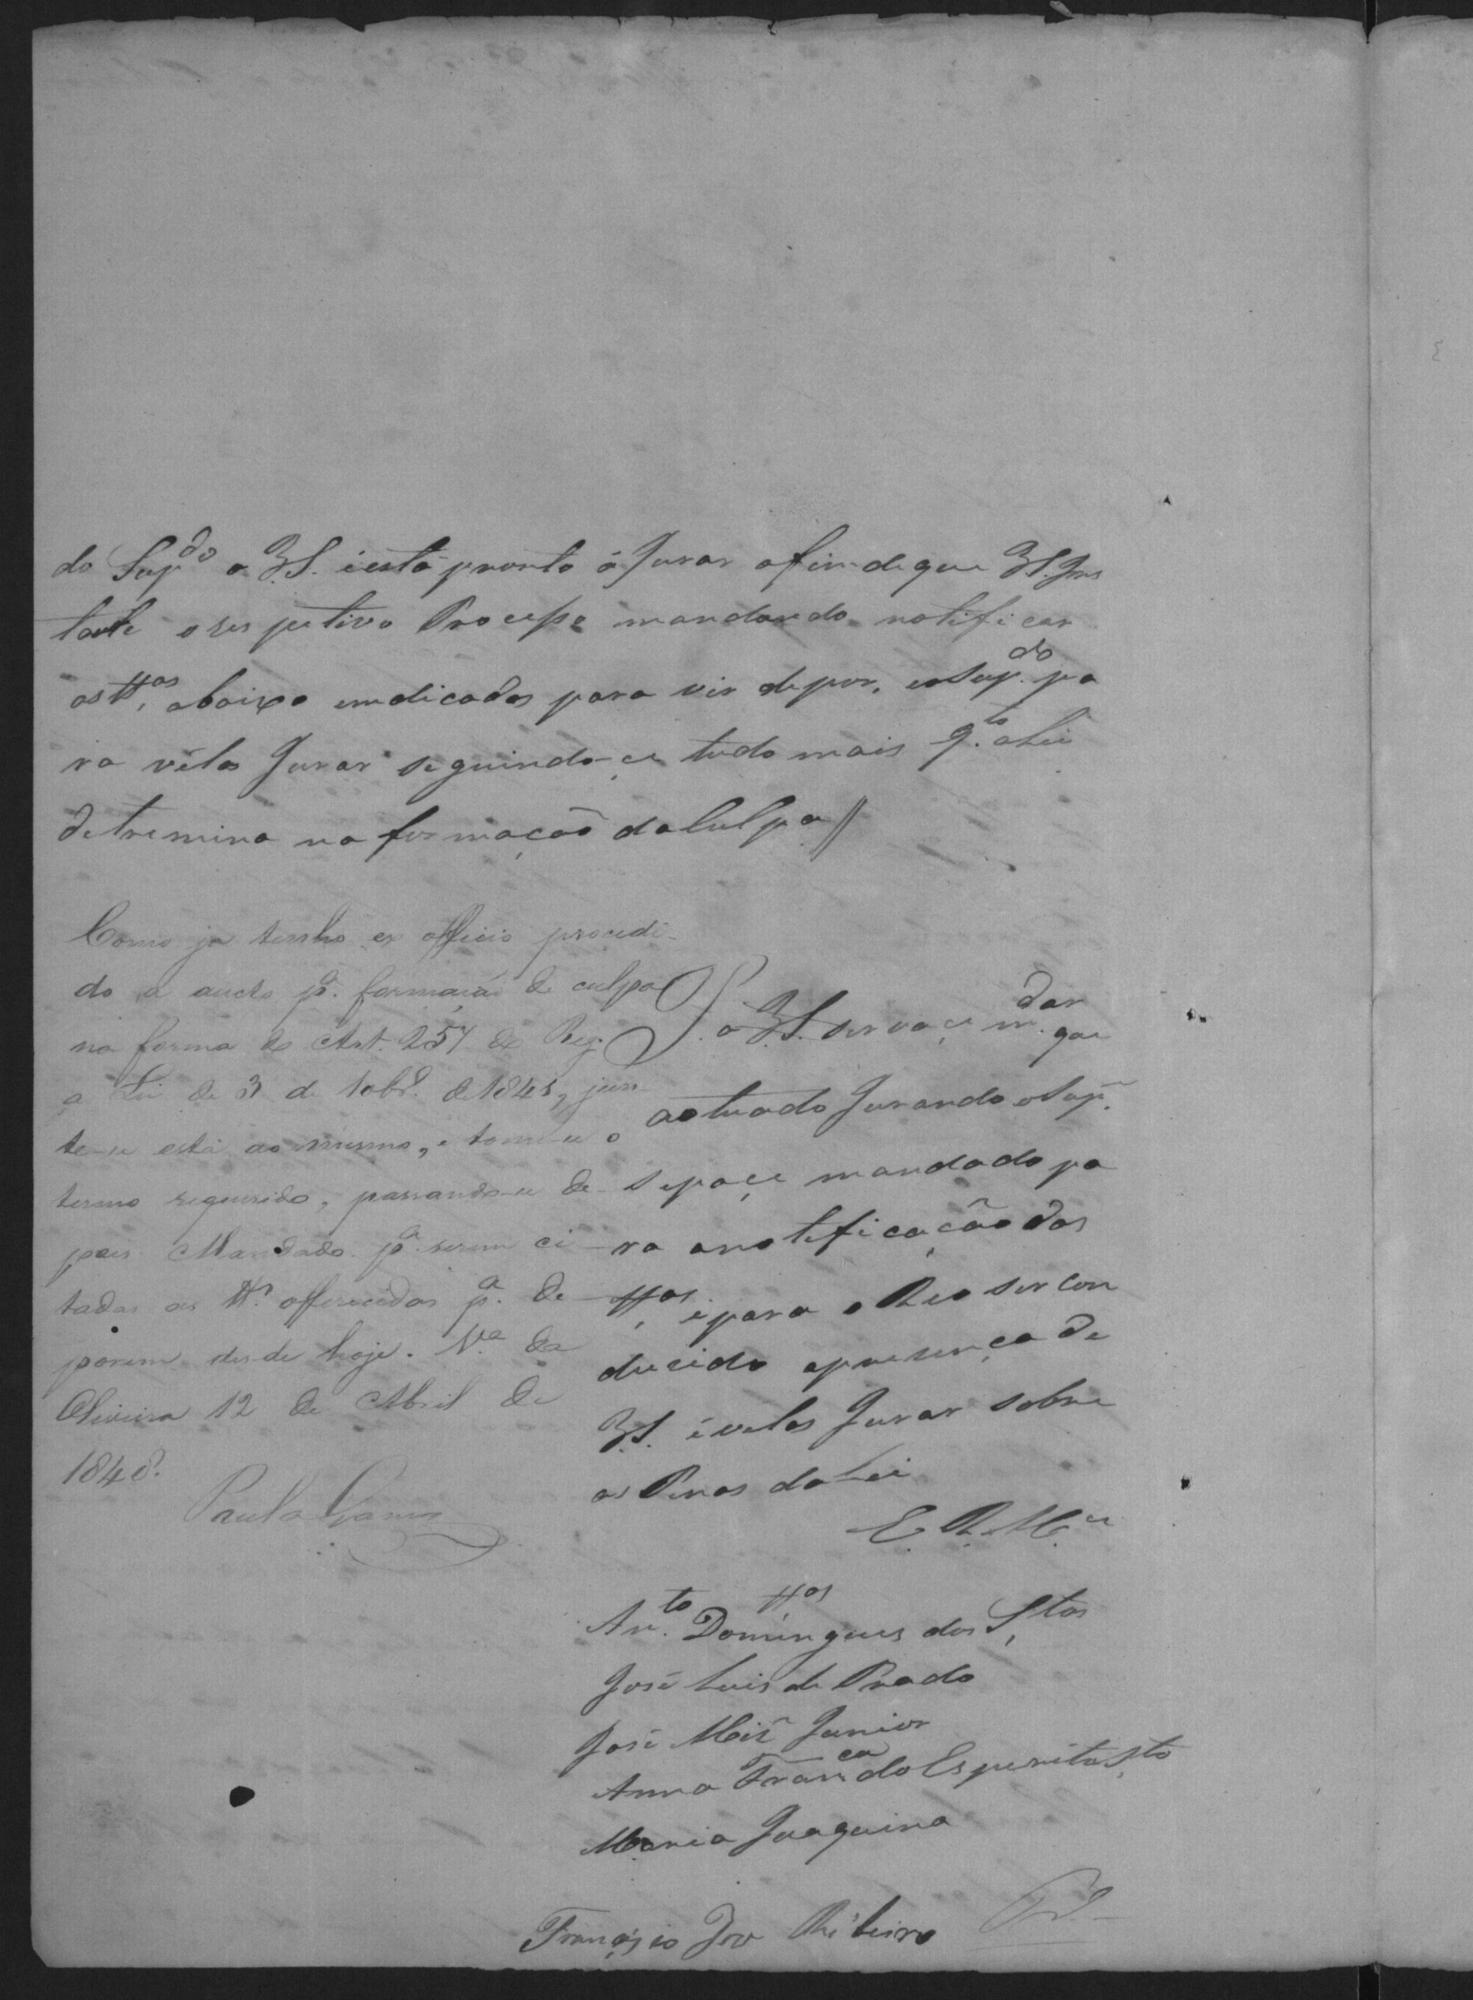 do Sup.do a V.S. i está pronto á Jurar afim de que V.S. Ins
taule o respetivo Procepo mandando notificar
as tt.as abaixo emdicadas para vir depor, eo Sup.do pa
ra vêlas Jurar seguindo-ce tudo mais q.to a Lei
detremina na formação da Culpa //
Como ja tenho ex officio procedi-
do a aucto p.a formação de culpa
na forma do Art. 257 do Reg.
a Lei de 3 de 10br.o de 1841, jun
te-se esta ao mesmo, e tome-se o
termo requerido, passando-se de-
pois Mandado p.a serem ci-
tadas as tt.as offerecidas p.a de-
porem desde hoje. V.a da
Oliveira 12 de Abril de
1848.
Paula Ramos
P. a V.S. servace m.dar que
actuado Jurando o Sup.e
sepace mandado pa
ra anotificação das
tt.as, i para o Reo ser con
ducido apresença de
V.S. é velas Jurar sobre
as Penas da Lei
E. R. M.ce
tt.as
An.to Domingues dos S.tos
José Luis de Prado
José Mis Junior
Anna Fran.ca do Esperito S.to
Maria Joaquina
Francisco Jose Ribeiro